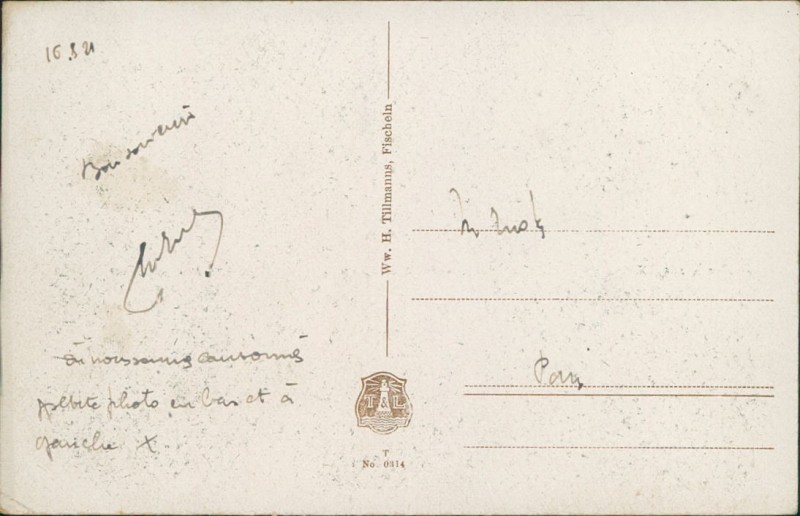 Bon souvenir
où nous sommes cantonnés
petite photo en bas et à
gauche X
Ww. H. Tillmanns, Fischeln
T & L
T
No. 0314
Paris